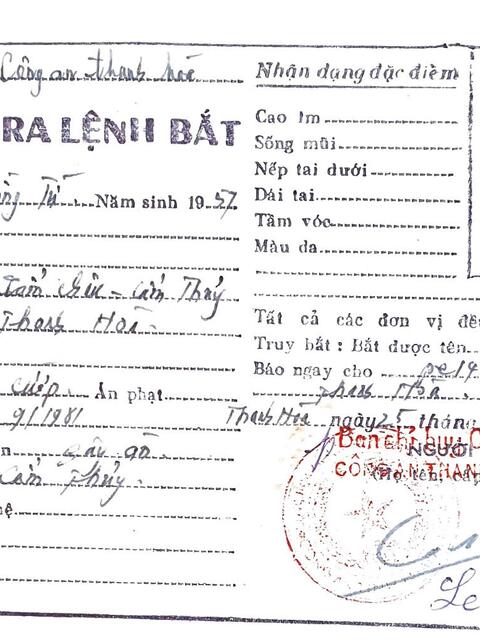 Công an thanh hóa
RA LỆNH BẮT
Tú Năm sinh 1957
Cẩm Thủy
Thanh Hóa
cướp Án phạt
9/1981
gây án
Cẩm Thủy
Nhận dạng đặc điểm
Cao 1m
Sống mũi
Nếp tai dưới
Dái tai
Tầm vóc
Màu da
Tất cả các đơn vị đề
Truy bắt : Bắt được tên
Báo ngay cho pc14
Thanh Hóa
Thanh Hóa ngày 25 tháng
Ban chỉ huy C
NGƯỜI
CÔNG AN THAN
(Họ tên, cấp
Le